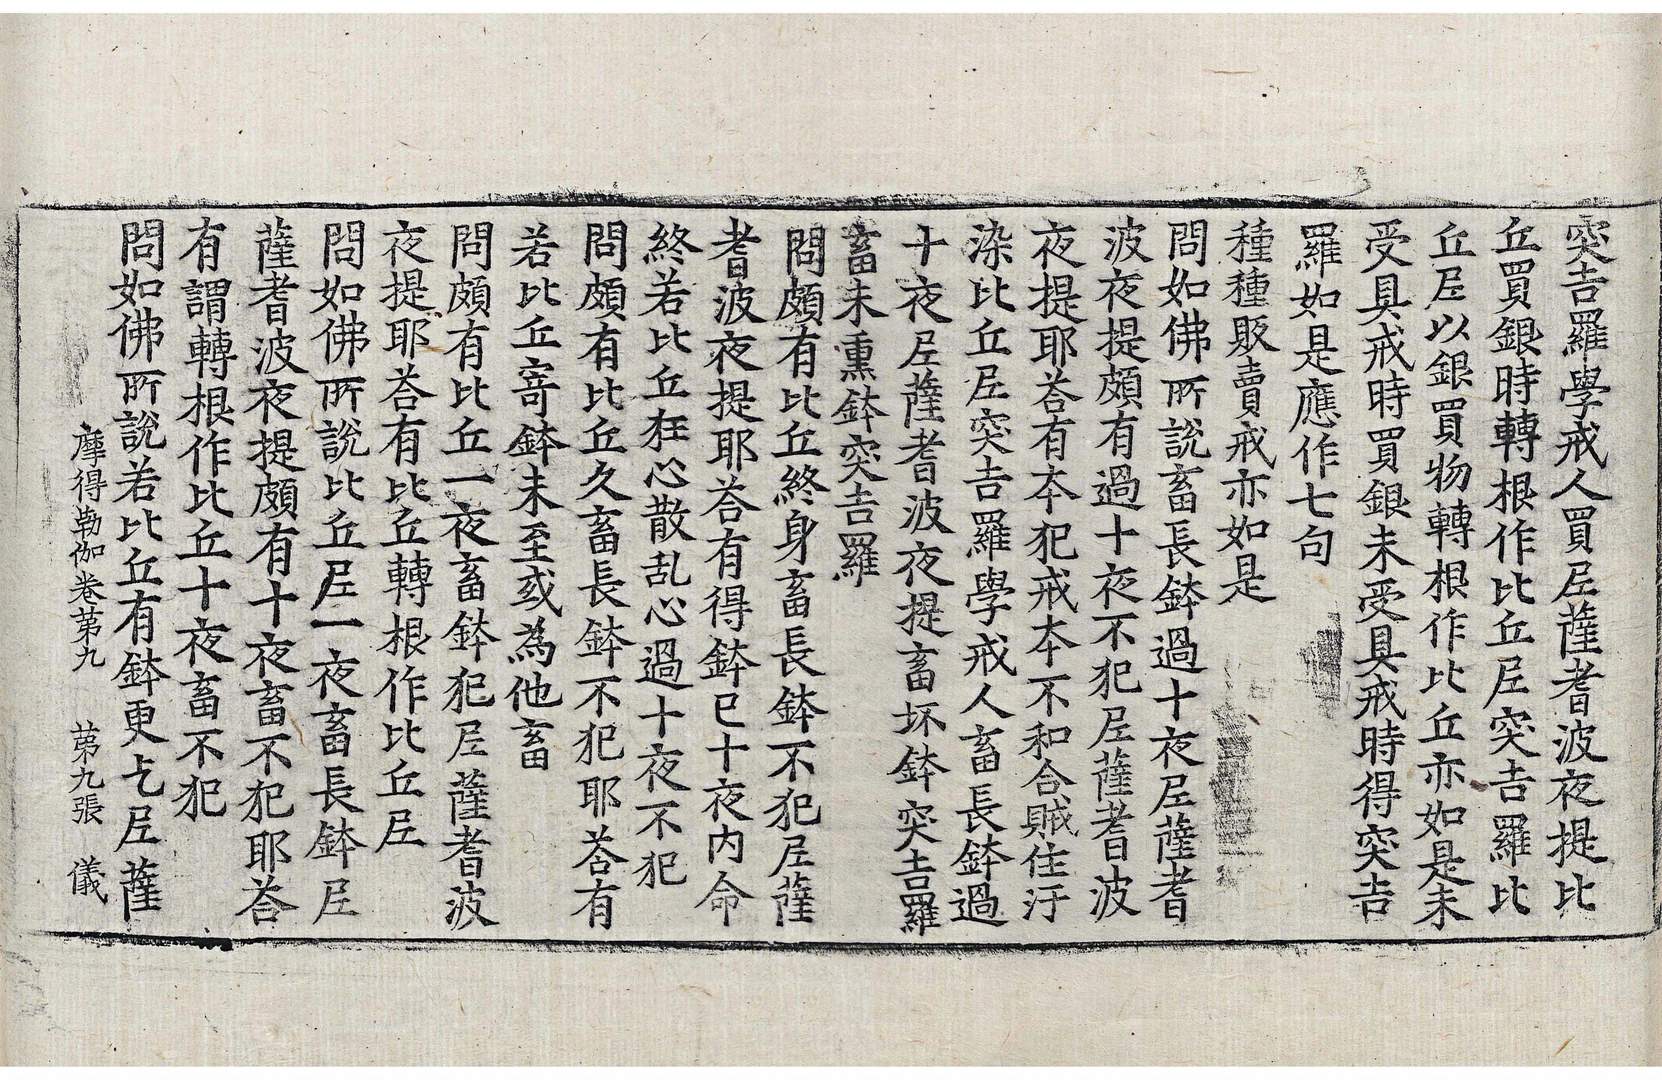 突吉羅學戒人買尼薩耆波夜提比
丘買銀時轉根作比丘尼突吉羅比
丘尼以銀買物轉根作比丘亦如是未
受具戒時買銀未受具戒時得突吉
羅如是應作七句
種種販賣戒亦如是
問如佛所說畜長鉢過十夜尼薩耆
波夜提頗有過十夜不犯尼薩耆波
夜提耶荅有夲犯戒夲不和合賊住汙
染比丘尼突吉羅學戒人畜長鉢過
十夜尼薩耆波夜提畜坏鉢突吉羅
畜未熏鉢突吉羅
問頗有比丘終身畜長鉢不犯尼薩
耆波夜提耶荅有得鉢已十夜内命
終若比丘狂心散乱心過十夜不犯
問頗有比丘久畜長鉢不犯耶荅有
若比丘寄鉢未至或為他畜
問頗有比丘一夜畜鉢犯尼薩耆波
夜提耶荅有比丘轉根作比丘尼
問如佛所說比丘尼一夜畜長鉢尼
薩耆波夜提頗有十夜畜不犯耶荅
有謂轉根作比丘十夜畜不犯
問如佛所說若比丘有鉢更乞尼薩
摩得勒伽卷苐九 苐九張 儀